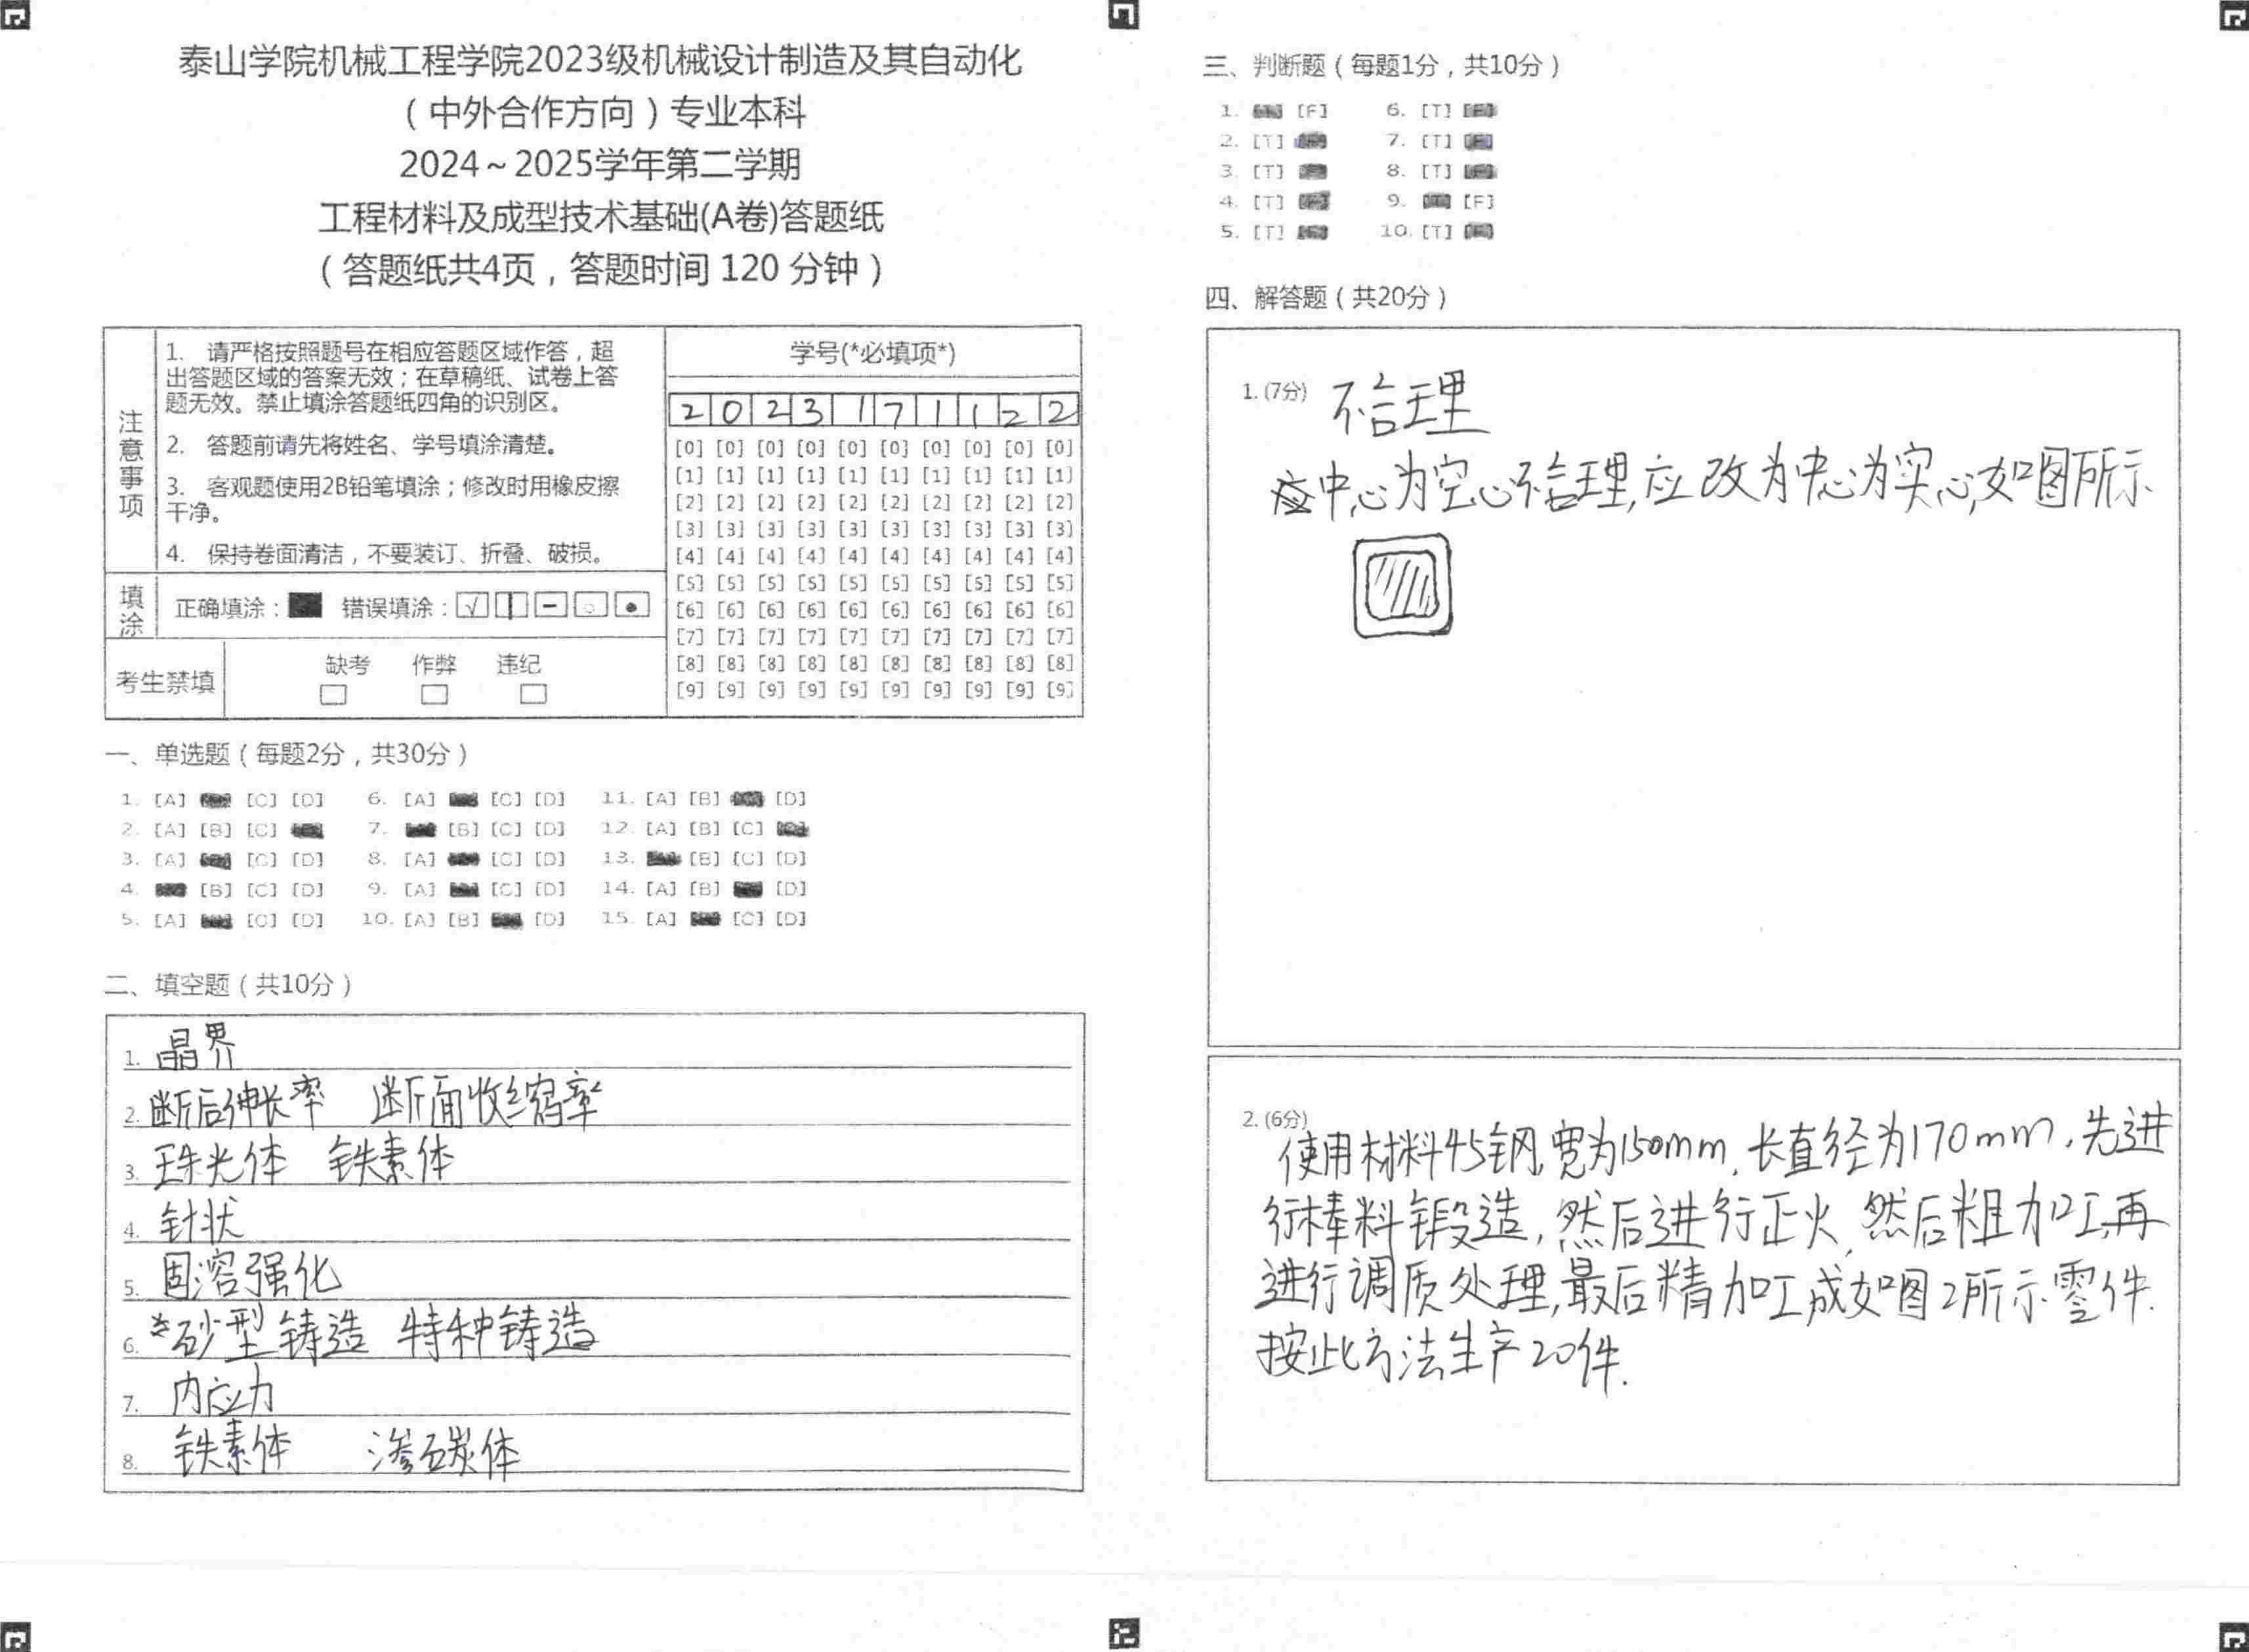 泰山学院机械工程学院2023级机械设计制造及其自动化
（中外合作方向）专业本科
2024～2025学年第二学期
工程材料及成型技术基础(A卷)答题纸
（答题纸共4页，答题时间 120 分钟）
注意事项
1. 请严格按照题号在相应答题区域作答，超
出答题区域的答案无效；在草稿纸、试卷上答
题无效。禁止填涂答题纸四角的识别区。
2. 答题前请先将姓名、学号填涂清楚。
3. 客观题使用2B铅笔填涂；修改时用橡皮擦
干净。
4. 保持卷面清洁，不要装订、折叠、破损。
填涂
正确填涂： 错误填涂：
考生禁填
缺考 作弊 违纪
学号(*必填项*)
2 0 2 3 1 7 1 1 2 2
[0] [0] [0] [0] [0] [0] [0] [0] [0] [0]
[1] [1] [1] [1] [1] [1] [1] [1] [1] [1]
[2] [2] [2] [2] [2] [2] [2] [2] [2] [2]
[3] [3] [3] [3] [3] [3] [3] [3] [3] [3]
[4] [4] [4] [4] [4] [4] [4] [4] [4] [4]
[5] [5] [5] [5] [5] [5] [5] [5] [5] [5]
[6] [6] [6] [6] [6] [6] [6] [6] [6] [6]
[7] [7] [7] [7] [7] [7] [7] [7] [7] [7]
[8] [8] [8] [8] [8] [8] [8] [8] [8] [8]
[9] [9] [9] [9] [9] [9] [9] [9] [9] [9]
一、单选题（每题2分，共30分）
1. [A] [C] [D] 6. [A] [C] [D] 11. [A] [B] [D]
2. [A] [B] [C] 7. [B] [C] [D] 12. [A] [B] [C]
3. [A] [C] [D] 8. [A] [C] [D] 13. [B] [C] [D]
4. [B] [C] [D] 9. [A] [C] [D] 14. [A] [B] [D]
5. [A] [C] [D] 10. [A] [B] [D] 15. [A] [C] [D]
二、填空题（共10分）
1. 晶界
2. 断后伸长率 断面收缩率
3. 珠光体 铁素体
4. 针状
5. 固溶强化
6. 砂型铸造 特种铸造
7. 内应力
8. 铁素体 渗碳体
三、判断题（每题1分，共10分）
1. [F] 6. [T]
2. [T] 7. [T]
3. [T] 8. [T]
4. [T] 9. [F]
5. [T] 10. [T]
四、解答题（共20分）
1. (7分) 不合理
中心为空心不合理,应改为中心为实心,如图所示
2. (6分)
使用材料45钢,宽为150mm,长直径为170mm,先进
行棒料锻造,然后进行正火,然后粗加工,再
进行调质处理,最后精加工成如图2所示零件.
按此方法生产20件.